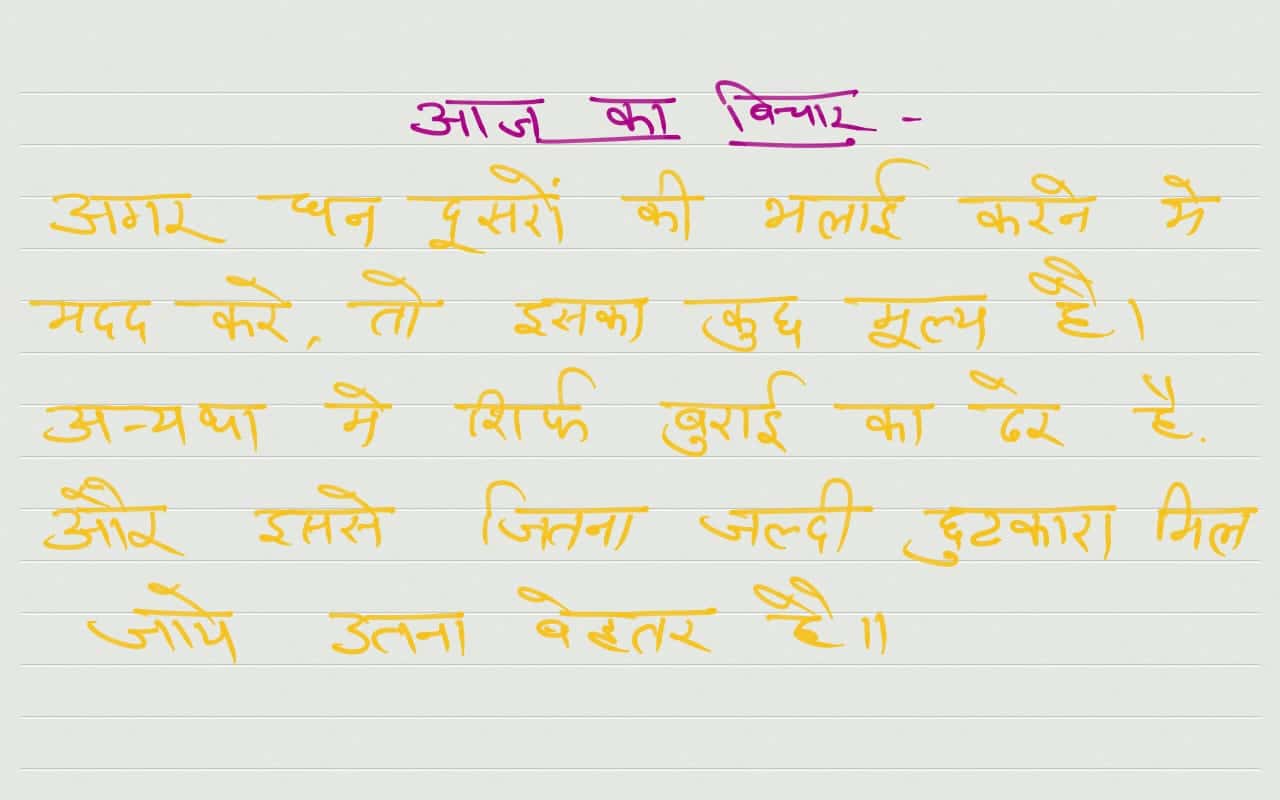 आज का विचार -
अगर धन दूसरों की भलाई करने मे
मदद करे, तो इसका कुछ मूल्य है।
अन्यथा मे शिर्फ बुराई का ढेर है.
और इससे जितना जल्दी छुटकारा मिल
जाये उतना बेहतर है॥